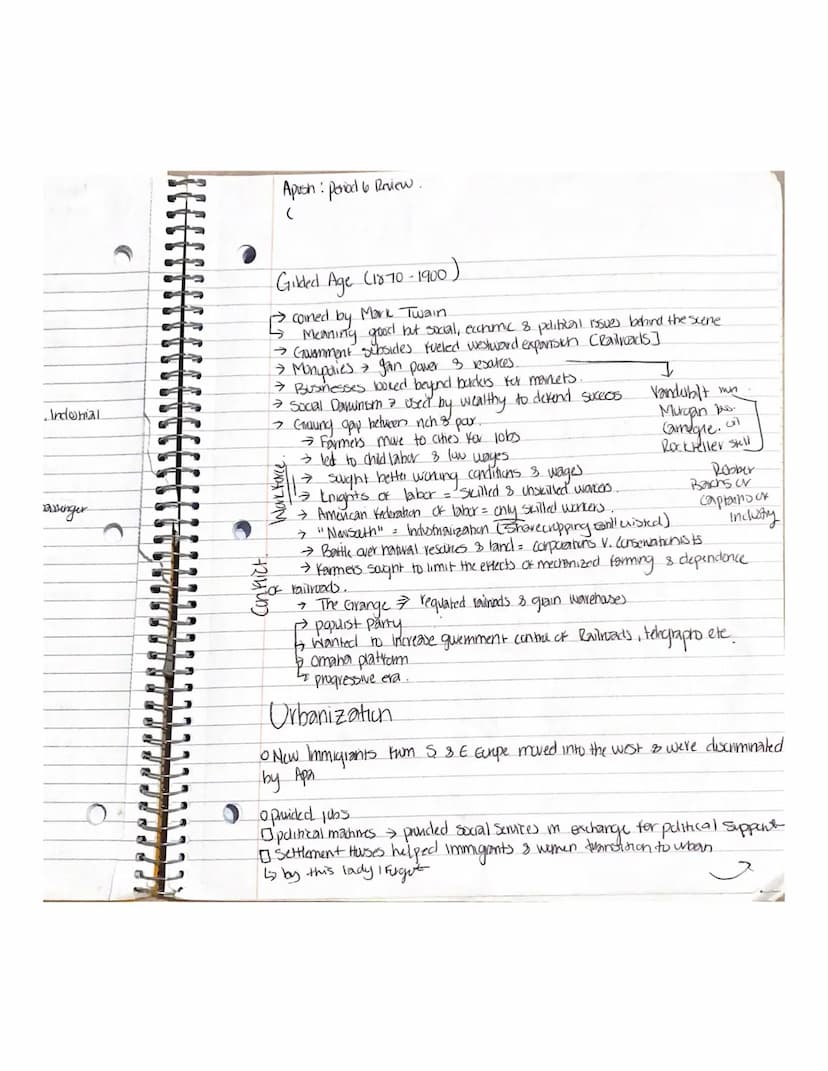 Apush : Period 6 Review .
(
Gilded Age (1870 - 1900)
→ coined by Mark Twain
↳ Meaning good but social, economic & political issues behind the scene
→ Government subsides fueled westward expansion [Railroads]
→ Monopolies → gain power & resources.
→ Businesses looked beyond borders for markets.
→ Social Darwinism → used by wealthy to defend success
→ Growing gap between rich & poor.
→ Farmers move to cities for jobs
→ led to child labor & low wages
→ sought better working conditions & wages
→ Knights of labor = skilled & unskilled workers.
→ American Federation of labor = only skilled workers.
→ "New South" = Industrialization (sharecropping still existed)
→ Battle over natural resources & land = corporations v. conservationists
→ Farmers sought to limit the effects of mechanized farming & dependence
of railroads.
→ The Grange → regulated railroads & grain warehouses
→ populist party
↳ Wanted to increase government control of Railroads, telegraphs etc.
↳ Omaha platform
↳ progressive era .
Workforce
Conflict
Vanderbilt
Morgan
Carnegie. oil
Rockfeller
Robber
Barons or
Captains of
Industry
Urbanization
o New Immigrants from S & E Europe moved into the west & were discriminated
by Apa
o provided jobs
□ political machines → provided social services in exchange for political support
□ Settlement Houses helped immigrants & women transition to urban
↳ by this lady I forgot
. Industrial